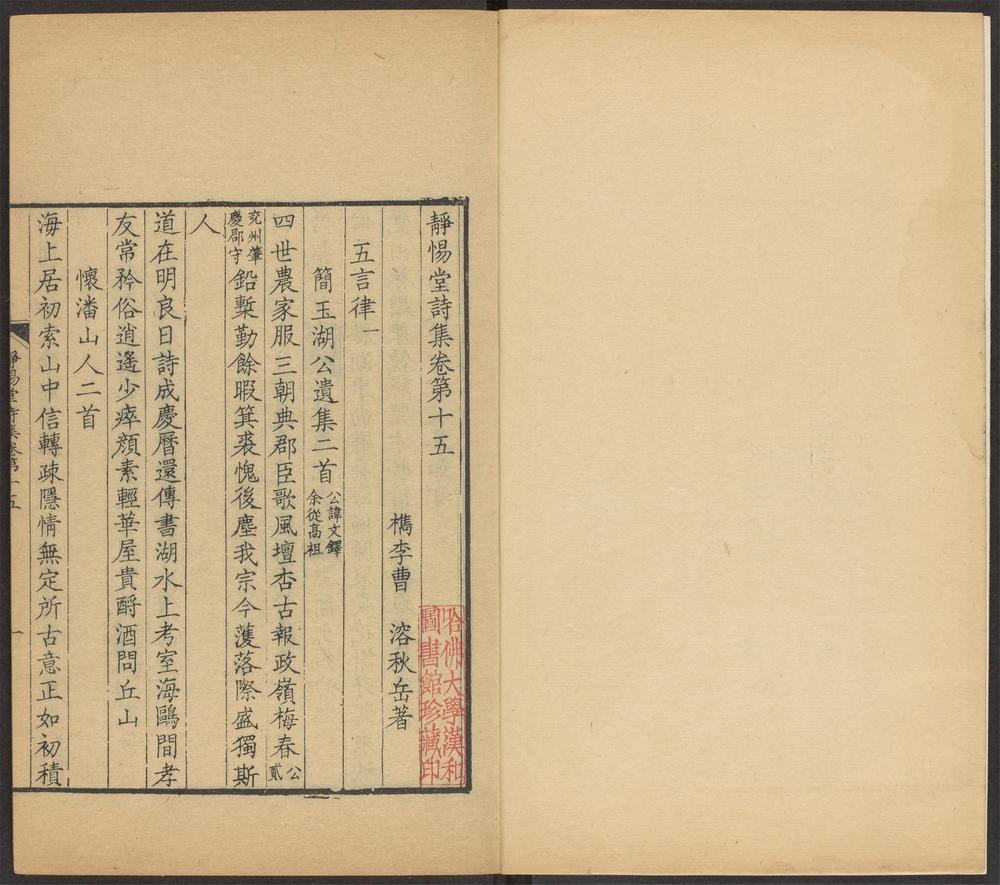 靜惕堂詩集卷第十五
檇李曹溶秋岳著
五言律一
簡玉湖公遺集二首公諱文鐸余從高祖
四世農家服三朝典郡臣歌風壇杏古報政嶺梅春公貳
兖州肇慶郡守鉛槧勤餘暇箕裘愧後塵我宗今蒦落際盛獨斯
人
道在明良日詩成慶曆還傳書湖水上考室海鷗間孝
友常矜俗逍遙少瘁顏素輕華屋貴酹酒問丘山
懷潘山人二首
海上居初索山中信轉疎隱情無定所古意正如初積
靜惕堂詩集卷第十五
一
哈佛大學漢和
圖書館珍藏印